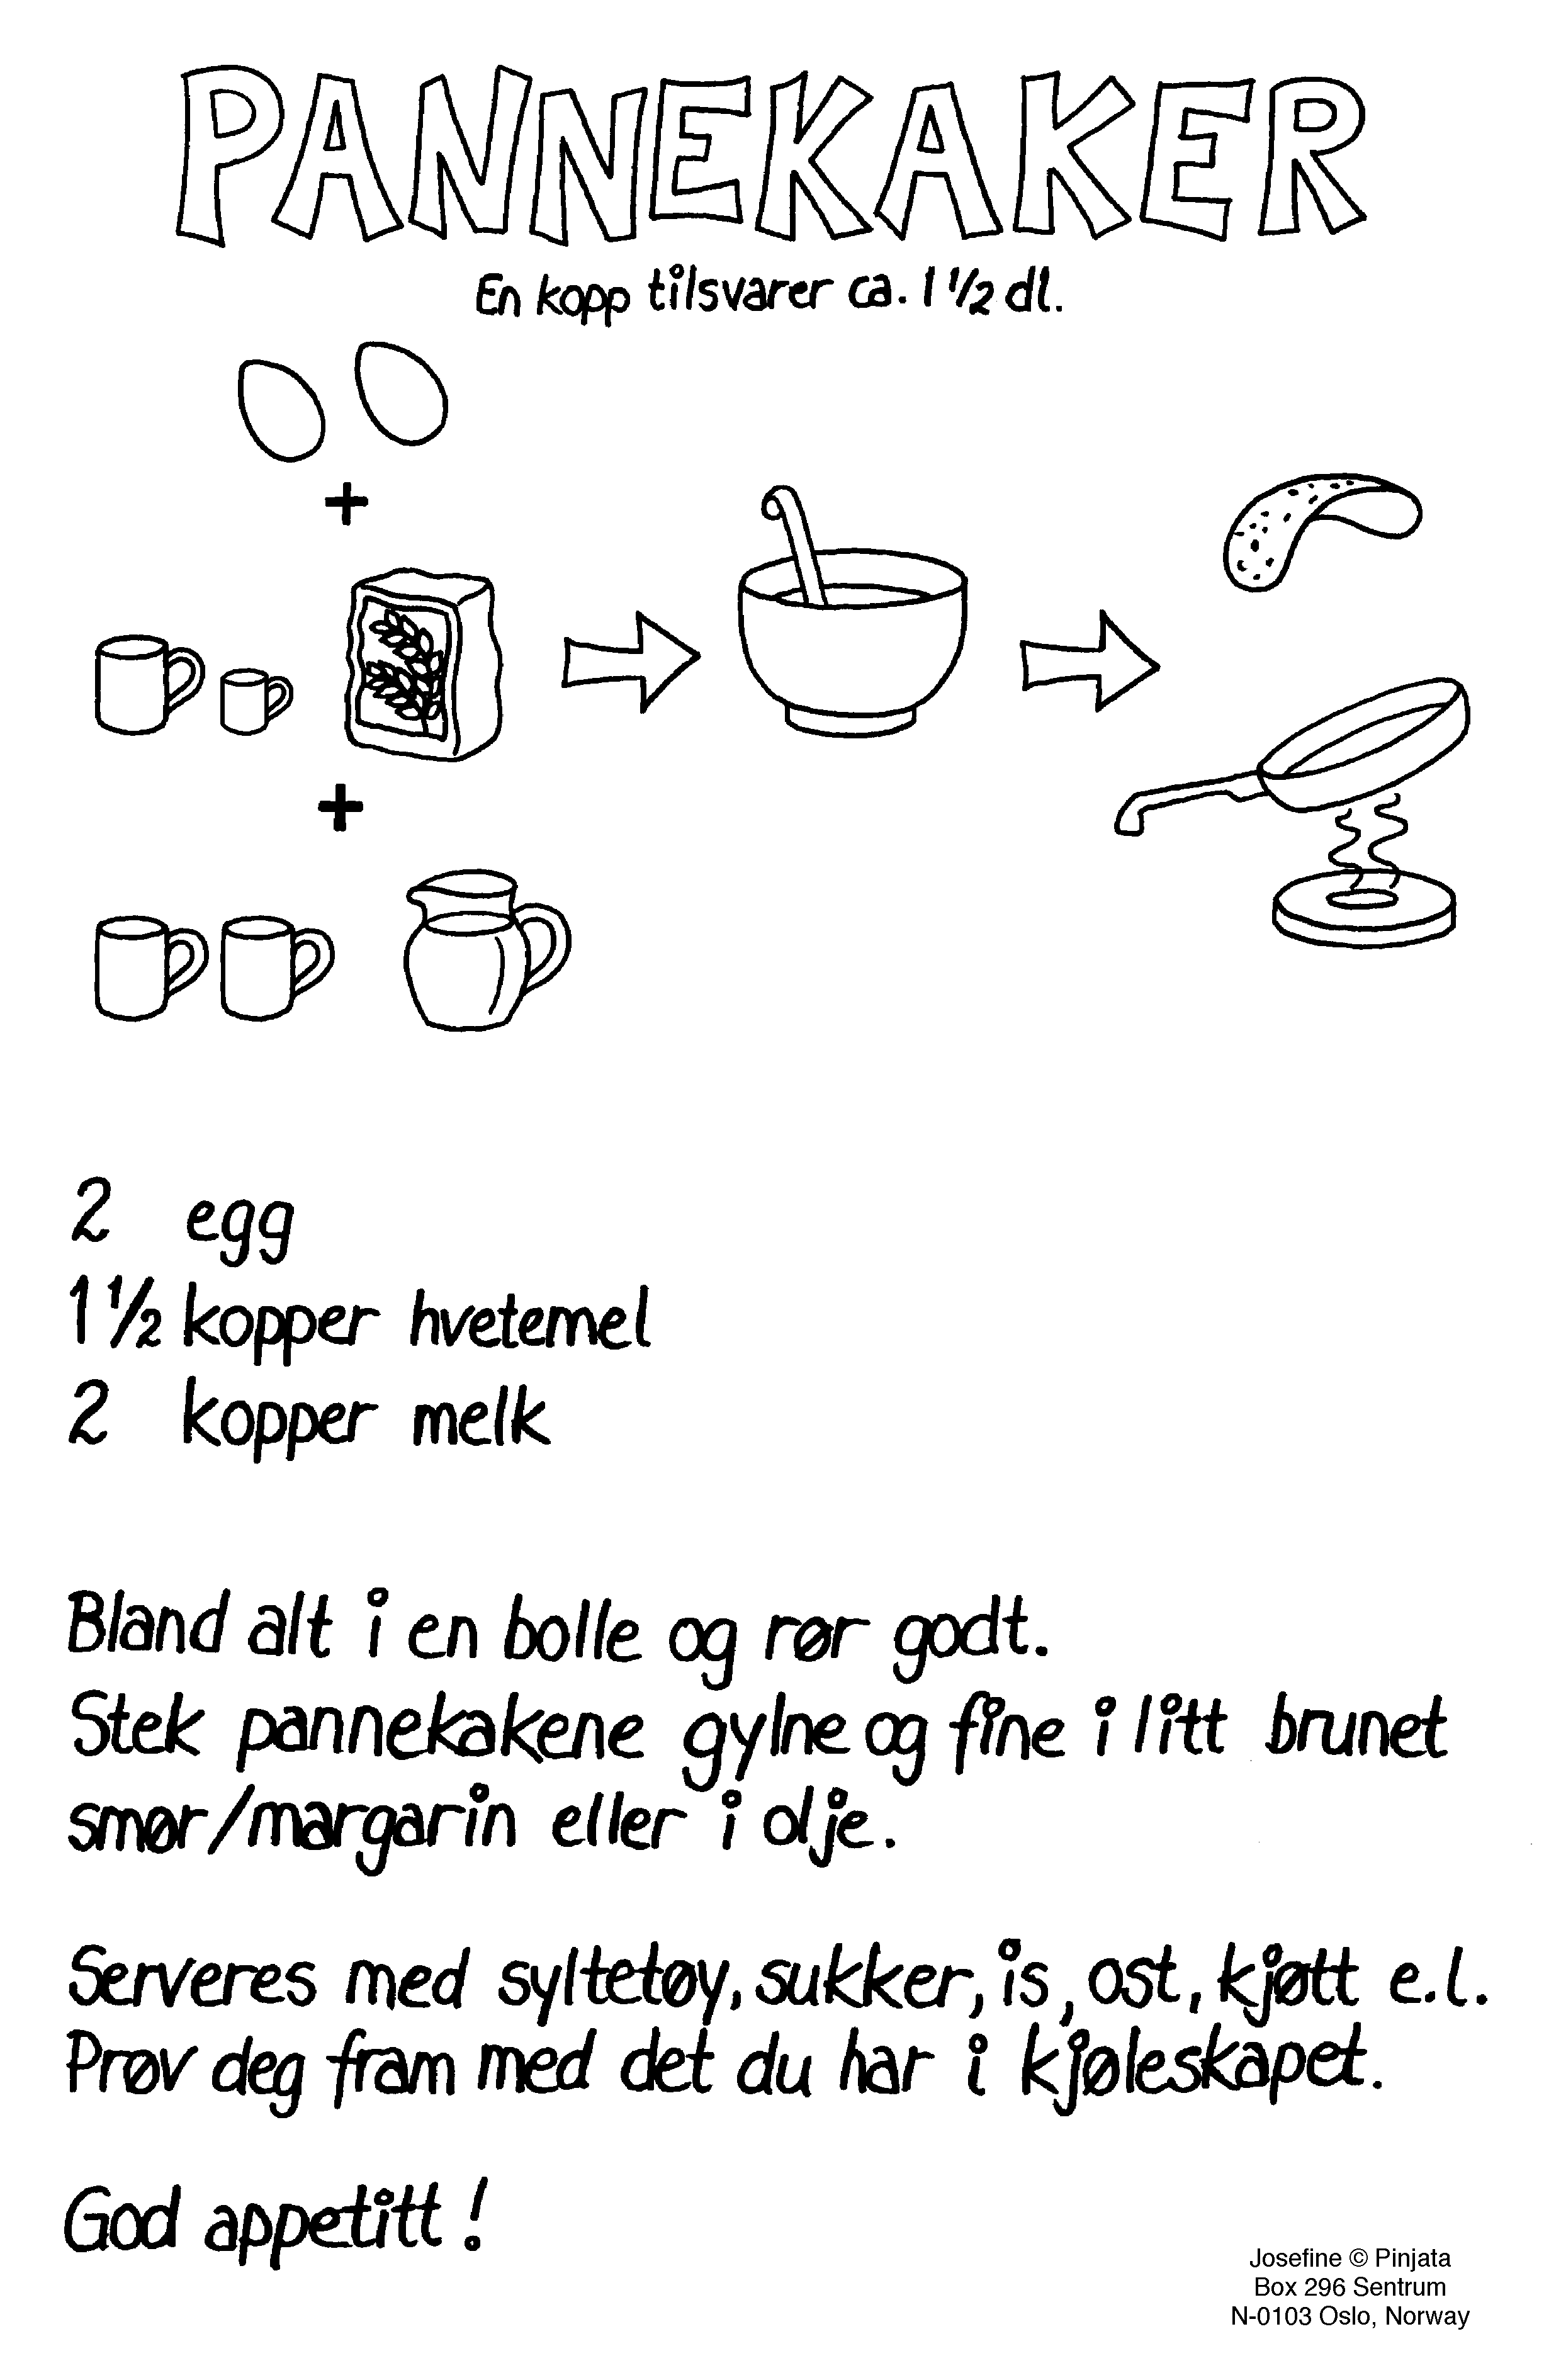 PANNEKAKER
En kopp tilsvarer ca. 1 1/2 dl.
+
+
2 egg
1 1/2 kopper hvetemel
2 kopper melk
Bland alt i en bolle og rør godt.
Stek pannekakene gylne og fine i litt brunet
smør/margarin eller i olje.
Serveres med syltetøy, sukker, is, ost, kjøtt e.l.
Prøv deg fram med det du har i kjøleskapet.
God appetitt!
Josefine © Pinjata
Box 296 Sentrum
N-0103 Oslo, Norway